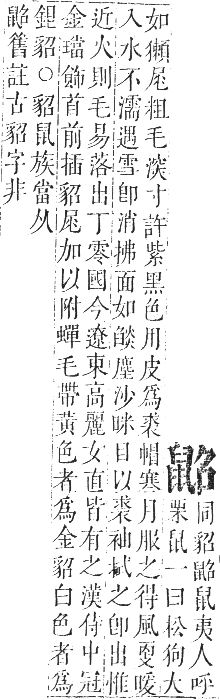 鼦
同貂鼦鼠夷人呼
栗鼠一曰松狗大
如獺尾粗毛深寸許紫黑色用皮爲裘帽寒月服之得風更暖
入水不濡遇雪卽消拂面如燄塵沙眯目以裘袖拭之卽出惟
近火則毛易落出丁零國今遼東高麗女直皆有之漢侍中冠
金璫飾首前插貂尾加以附蟬毛帶黃色者爲金貂白色者爲
銀貂○貂鼠族當从
鼦舊註古貂字非